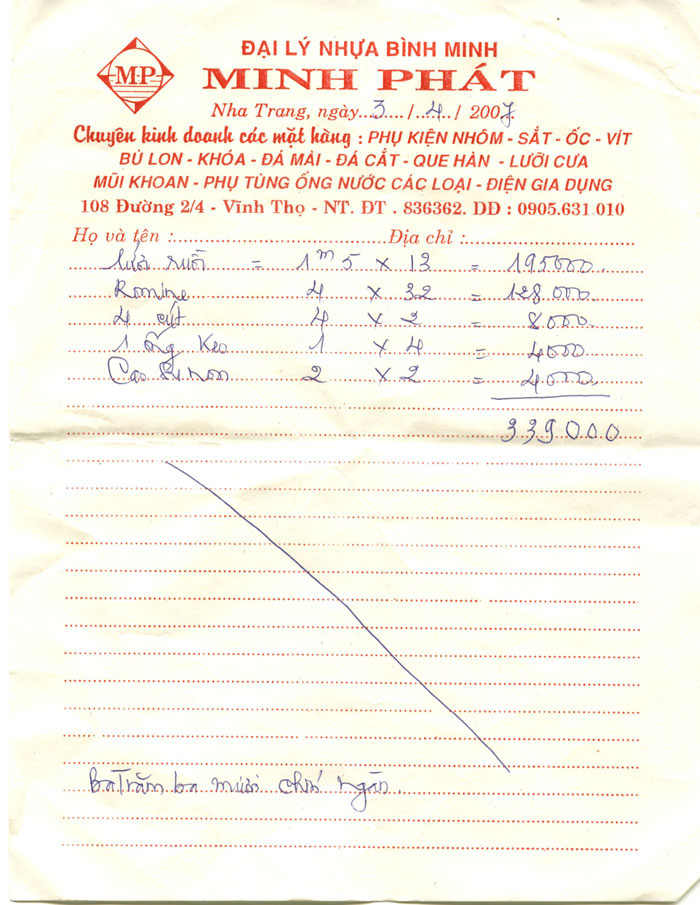 ĐẠI LÝ NHỰA BÌNH MINH
M.P
MINH PHÁT
Nha Trang, ngày...3..../...4.../ 2007.
Chuyên kinh doanh các mặt hàng : PHỤ KIỆN NHÔM - SẮT - ỐC - VÍT
BÙ LON - KHÓA - ĐÁ MÀI - ĐÁ CẮT - QUE HÀN - LƯỠI CƯA
MŨI KHOAN - PHỤ TÙNG ỐNG NƯỚC CÁC LOẠI - ĐIỆN GIA DỤNG
108 Đường 2/4 - Vĩnh Thọ - NT. ĐT . 836362. DĐ : 0905.631.010
Họ và tên : Địa chỉ :
= 1m5 x 13 = 195000
Romine 4 x 32 = 128.000
4 cút 4 x 2 = 8000
1 ống keo 1 x 4 = 4000
Cao su non 2 x 2 = 4000
339000
Ba trăm ba mươi chín ngàn.